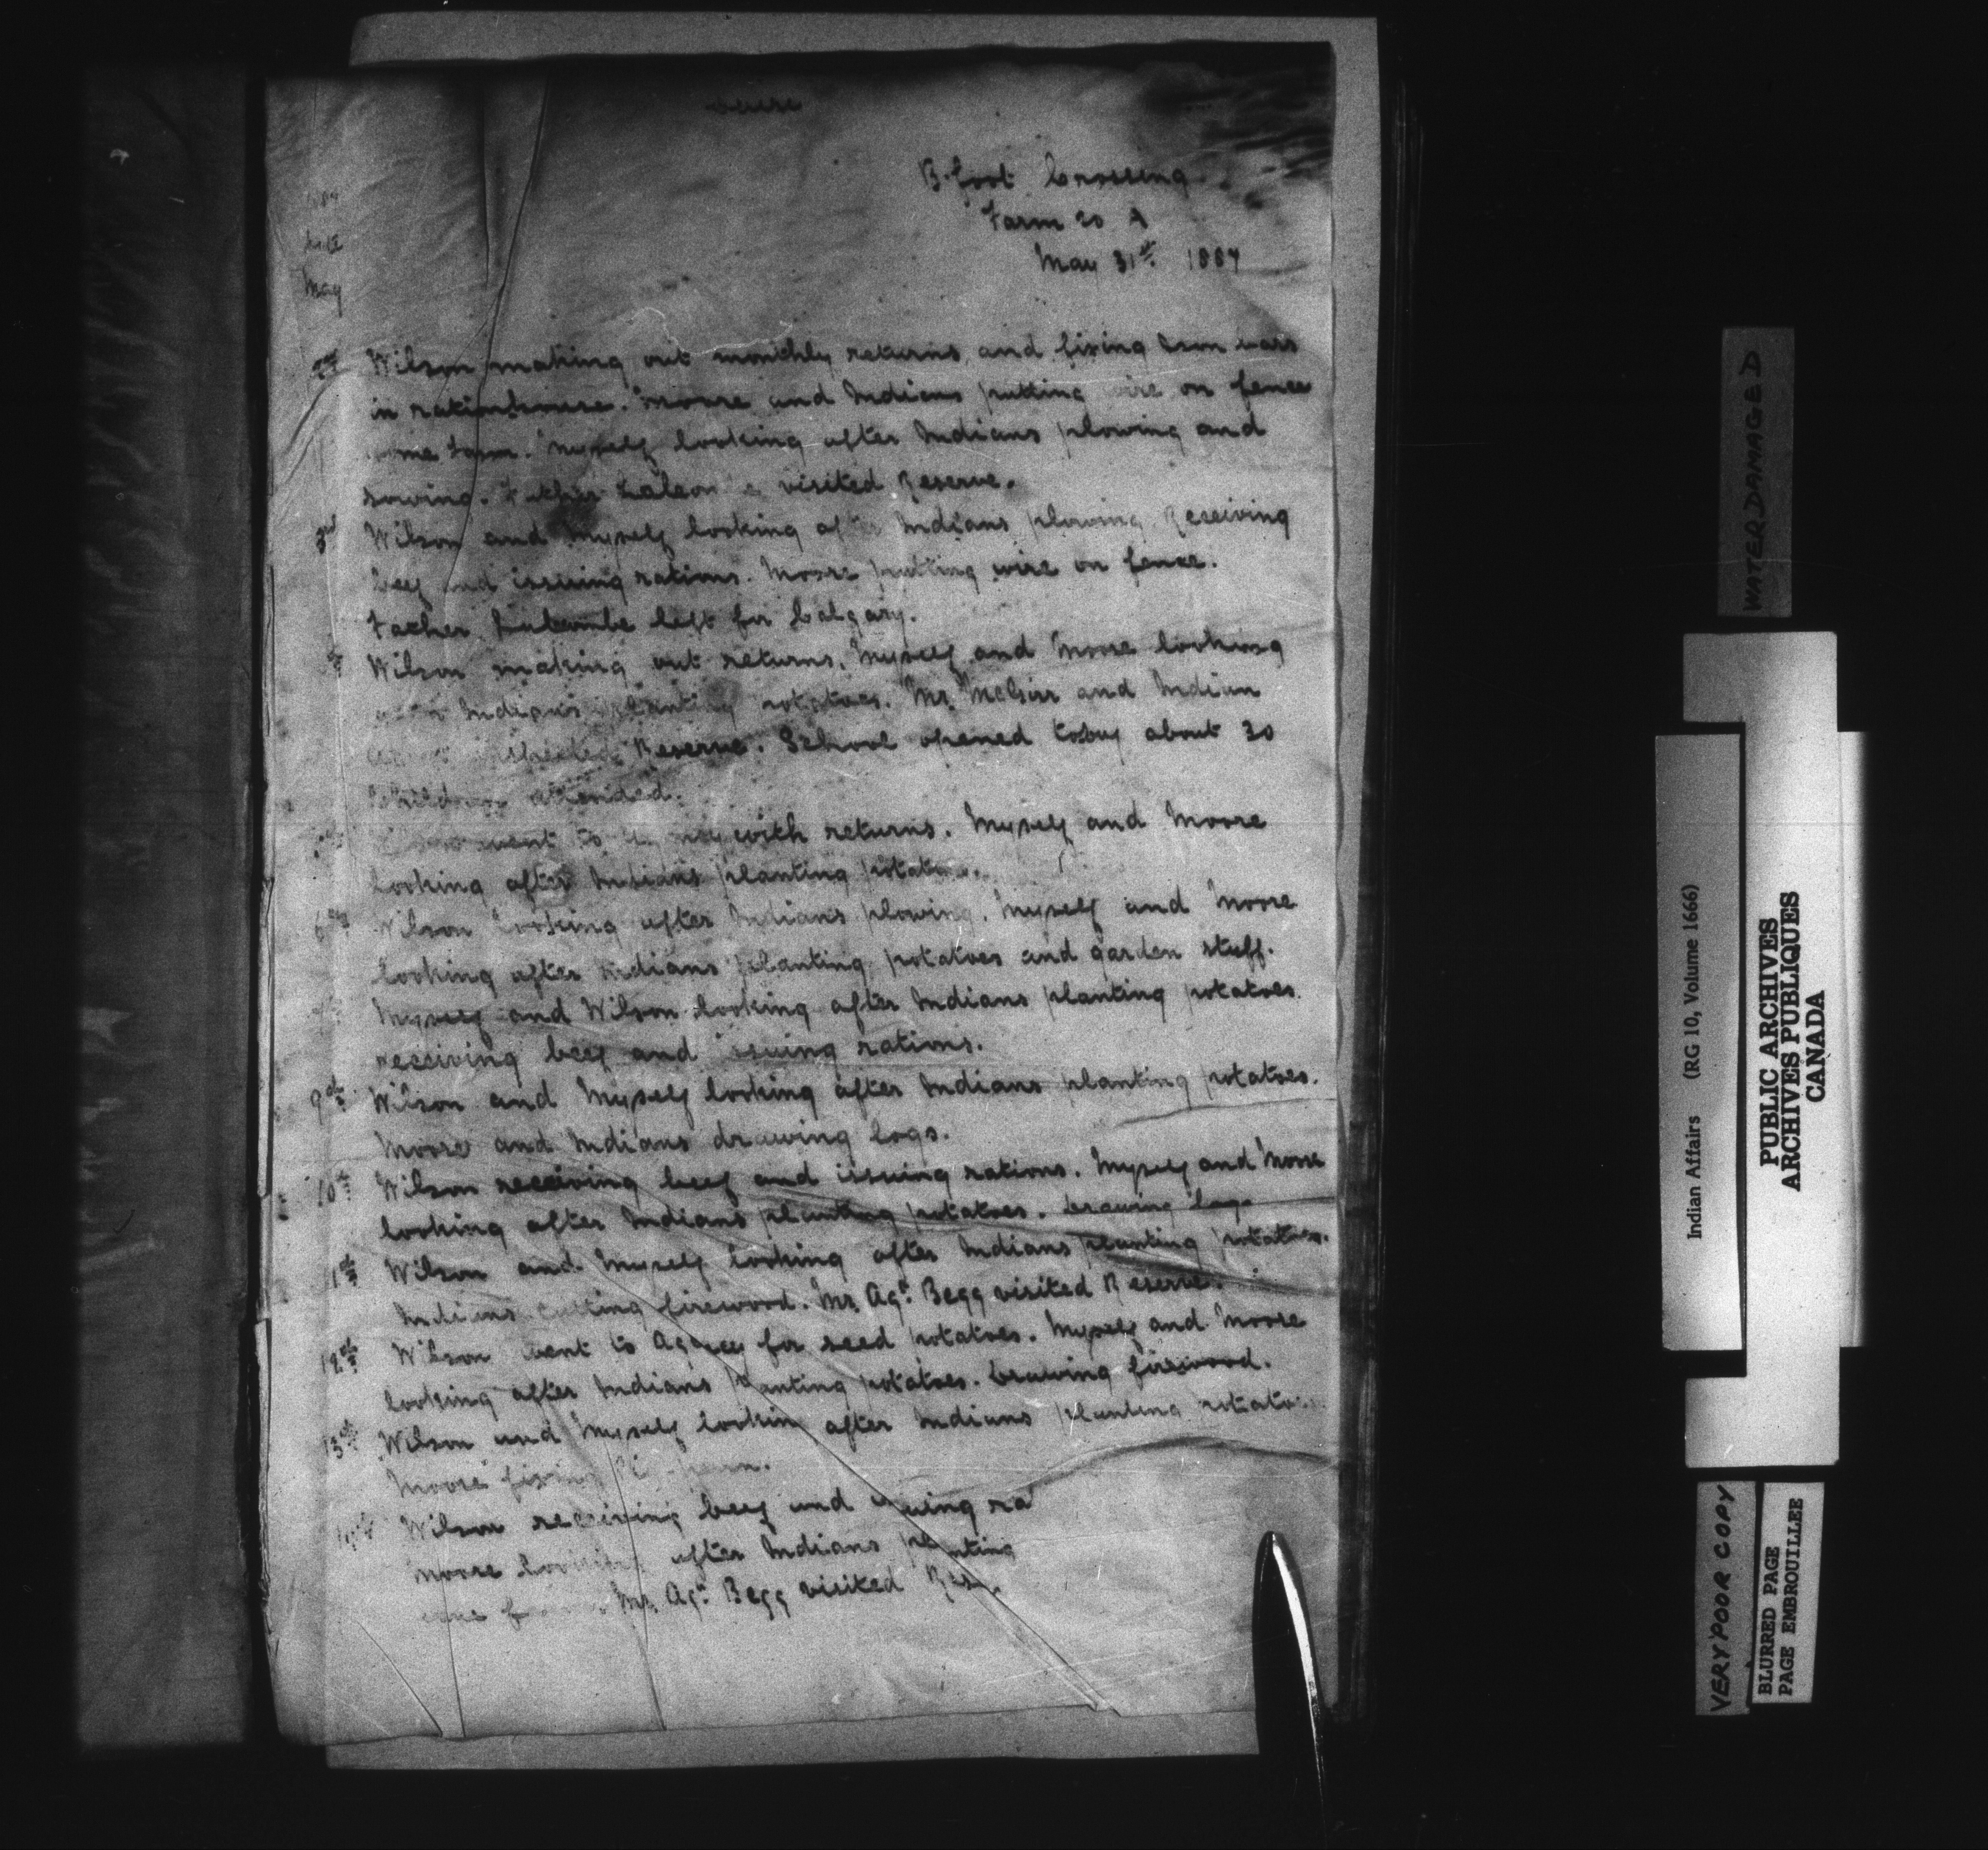 B. foot Crossing
Farm 20 A
May 31st 1884
May
2nd Wilson making out monthly returns, and fixing iron bars
in rationhouse. Moore and Indians putting wire on fence
Farm. Myself looking after Indians plowing and
sowing. Father visited Reserve.
3rd Wilson and Myself looking after Indians plowing. Receiving
beef and issuing rations. Moore putting wire on fence.
Father Lacombe left for Calgary.
Wilson making out returns. Myself and Moore looking
Indians planting potatoes. Mr. McGirr and Indian
Reserve. School opened today about 30
Children attended.
went to with returns. Myself and Moore
looking after Indians planting potatoes.
6th Wilson looking after Indians plowing. Myself and Moore
looking after Indians planting potatoes and garden stuff.
Myself and Wilson looking after Indians planting potatoes.
receiving beef and issuing rations.
9th Wilson and Myself looking after Indians planting potatoes.
Moore and Indians drawing logs.
10th Wilson receiving beef and issuing rations. Myself and Moore
looking after Indians planting potatoes. Drawing logs
Wilson and Myself looking after Indians planting potatoes.
Indians cutting firewood. Mr. Agt. Begg visited Reserve.
12th Wilson went to Agency for seed potatoes. Myself and Moore
looking after Indians planting potatoes. Drawing firewood.
13th Wilson and Myself looking after Indians planting potatoes
Moore fixing
Wilson receiving beef and issuing ra
Moore looking after Indians planting
Mr. Agt. Begg visited Res
WATERDAMAGED
Indian Affairs (RG 10, Volume 1666)
PUBLIC ARCHIVES
ARCHIVES PUBLIQUES
CANADA
VERY POOR COPY
BLURRED PAGE
PAGE EMBROUILLEE